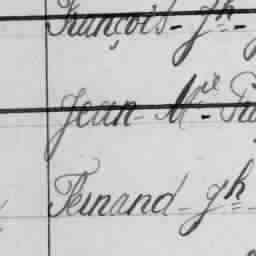 François - Jh -
Jean - Mie -
Fernand - Jh -